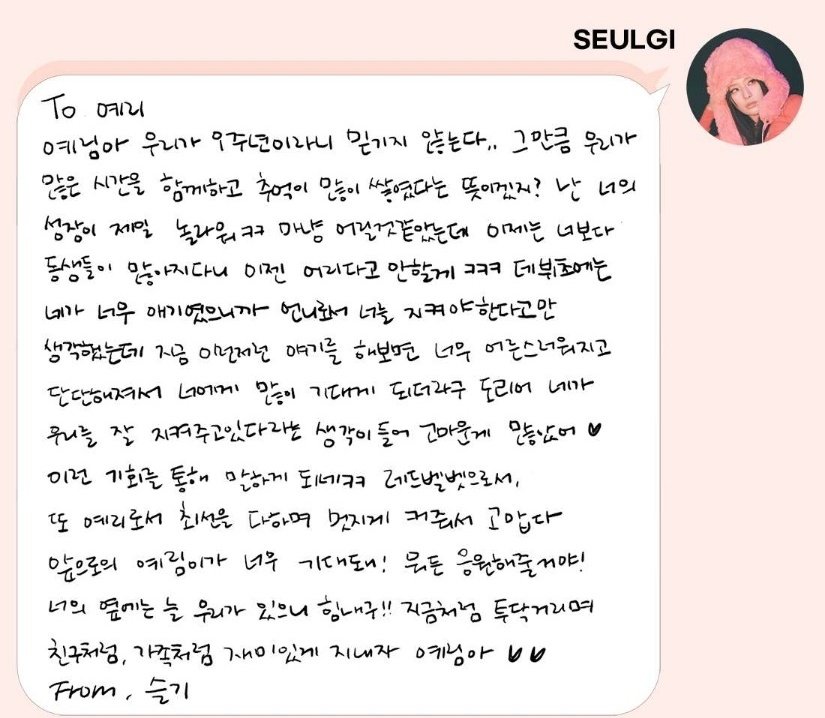 SEULGI
To 예리
예림아 우리가 9주년이라니 믿기지 않는다.. 그만큼 우리가
많은 시간을 함께하고 추억이 많이 쌓였다는 뜻이겠지? 난 너의
성장이 제일 놀라워ㅋㅋ 마냥 어릴것같았는데 이제는 너보다
동생들이 많아지다니 이젠 어리다고 안할게 ㅋㅋㅋ 데뷔초에는
네가 너무 애기였으니까 언니로서 너를 지켜야한다고만
생각했는데 지금 이런저런 얘기를 해보면 너무 어른스러워지고
단단해져서 너에게 많이 기대게 되더라구 도리어 네가
우리를 잘 지켜주고있다라는 생각이 들어 고마운게 많았어 ♥
이런 기회를 통해 말하게 되네ㅋㅋ 레드벨벳으로서,
또 예리로서 최선을 다하며 멋지게 커줘서 고맙다
앞으로의 예림이가 너무 기대돼! 뭐든 응원해줄거야!
너의 옆에는 늘 우리가 있으니 힘내구!! 지금처럼 투닥거리며
친구처럼, 가족처럼 재미있게 지내자 예림아 ♥♥
From. 슬기